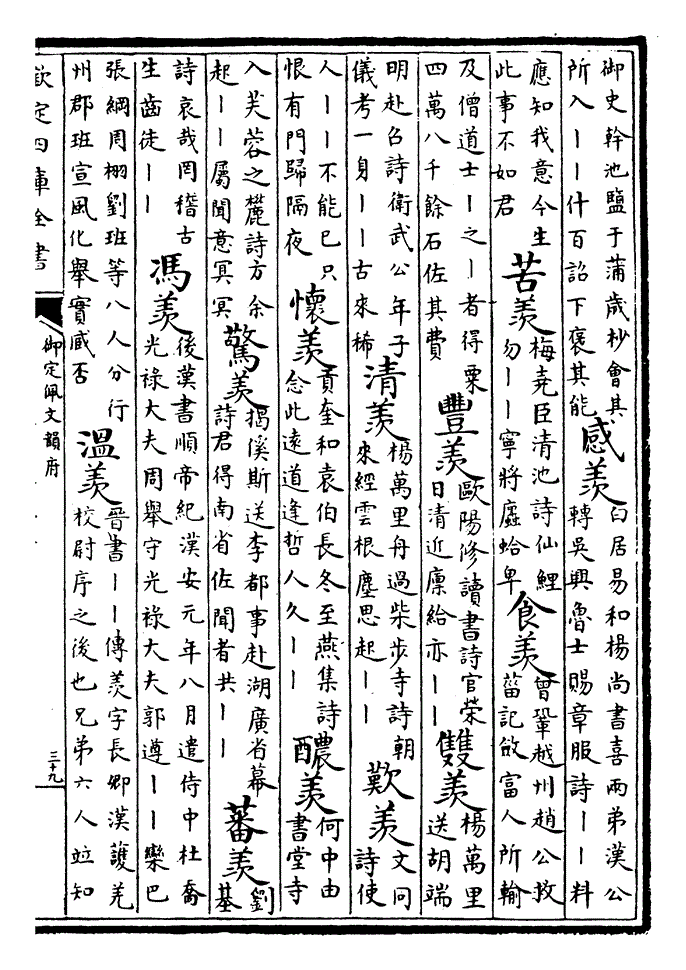 御史幹池鹽于蒲歲杪會其
所入丨丨什百詔下褒其能
感羨
白居易和楊尚書喜兩弟漢公
轉吳興魯士賜章服詩丨丨料
應知我意今生
此事不如君
苦羨
梅堯臣清池詩仙鯉
勿丨丨寧將蠯蛤卑
食羨
曾鞏越州趙公救
菑記斂富人所輸
及僧道士丨之丨者得粟
四萬八千餘石佐其費
豐羨
歐陽修讀書詩官榮
日清近廩給亦丨丨
雙羨
楊萬里
送胡端
明赴召詩衛武公年子
儀考一身丨丨古來稀
清羨
楊萬里舟過柴步寺詩朝
來經雲根塵思起丨丨
歎羨
文同
詩使
人丨丨不能已只
恨有門歸隔夜
懷羨
貢奎和袁伯長冬至燕集詩
念此遠道逢哲人久丨丨
醲羨
何中由
書堂寺
入芙蓉之麓詩方余
起丨丨屬聞意冥冥
驚羨
揭傒斯送李都事赴湖廣省幕
詩君得南省佐聞者共丨丨
蕃羨
劉
基
詩哀哉罔稽古
生齒徒丨丨
馮羨
後漢書順帝紀漢安元年八月遣侍中杜喬
光祿大夫周舉守光祿大夫郭遵丨丨欒巴
張綱周栩劉班等八人分行
州郡班宣風化舉實臧否
溫羨
晉書丨丨傳羨字長卿漢護羌
校尉序之後也兄弟六人竝知
欽定四庫全書
御定佩文韻府
三十九